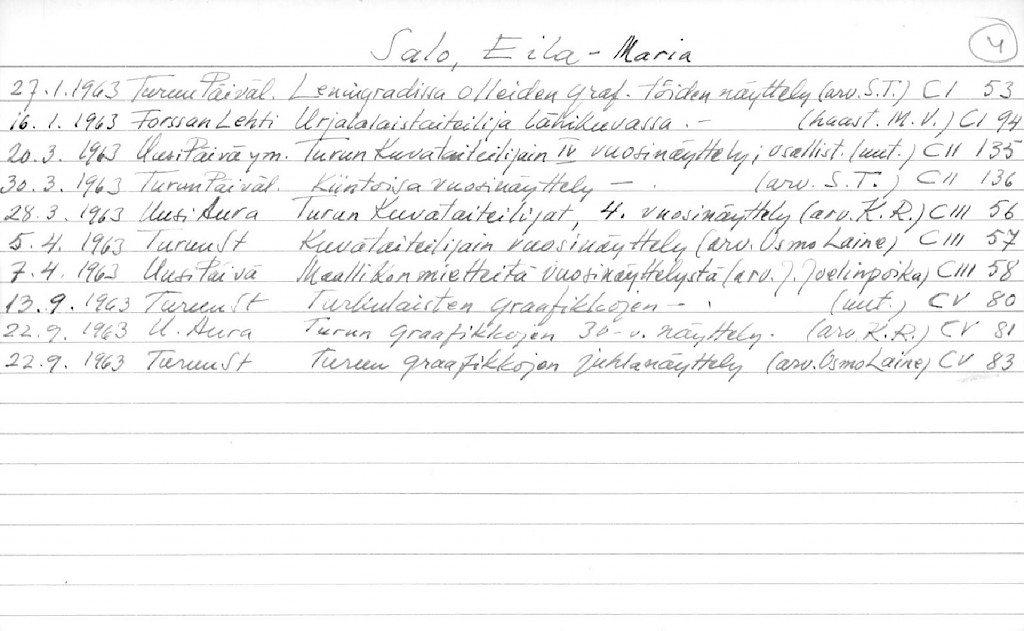 Salo, Eila-Maria
4
27.1.1963 Turun Päiväl. Leningradissa olleiden graf. töiden näyttely (arv. S.T.) C I 53
16.1.1963 Forssan Lehti Urjalalaistaiteilija lähikuvassa.- (haast. M.V.) CI 94
20.3.1963 Uusi Päivä ym. Turun Kuvataiteilijain IV vuosinäyttely; osallist. (uut.) C II 135
30.3.1963 Turun Päiväl. Kiintoisa vuosinäyttely - . (arv. S.T.) C II 136
28.3.1963 Uusi Aura Turun Kuvataiteilijat, 4. vuosinäyttely (arv. K.R.) C III 56
5.4.1963 Turun St Kuvataiteilijain vuosinäyttely (arv. Osmo Laine) C III 57
7.4.1963 Uusi Päivä Maallikon mietteitä vuosinäyttelystä (arv. J. Joelinpoika) C III 58
13.9.1963 Turun St Turkulaisten graafikkojen - . (uut.) CV 80
22.9.1963 U. Aura Turun graafikkojen 30-v. näyttely. (arv. K.R.) CV 81
22.9.1963 Turun St Turun graafikkojen juhlanäyttely (arv. Osmo Laine) CV 83